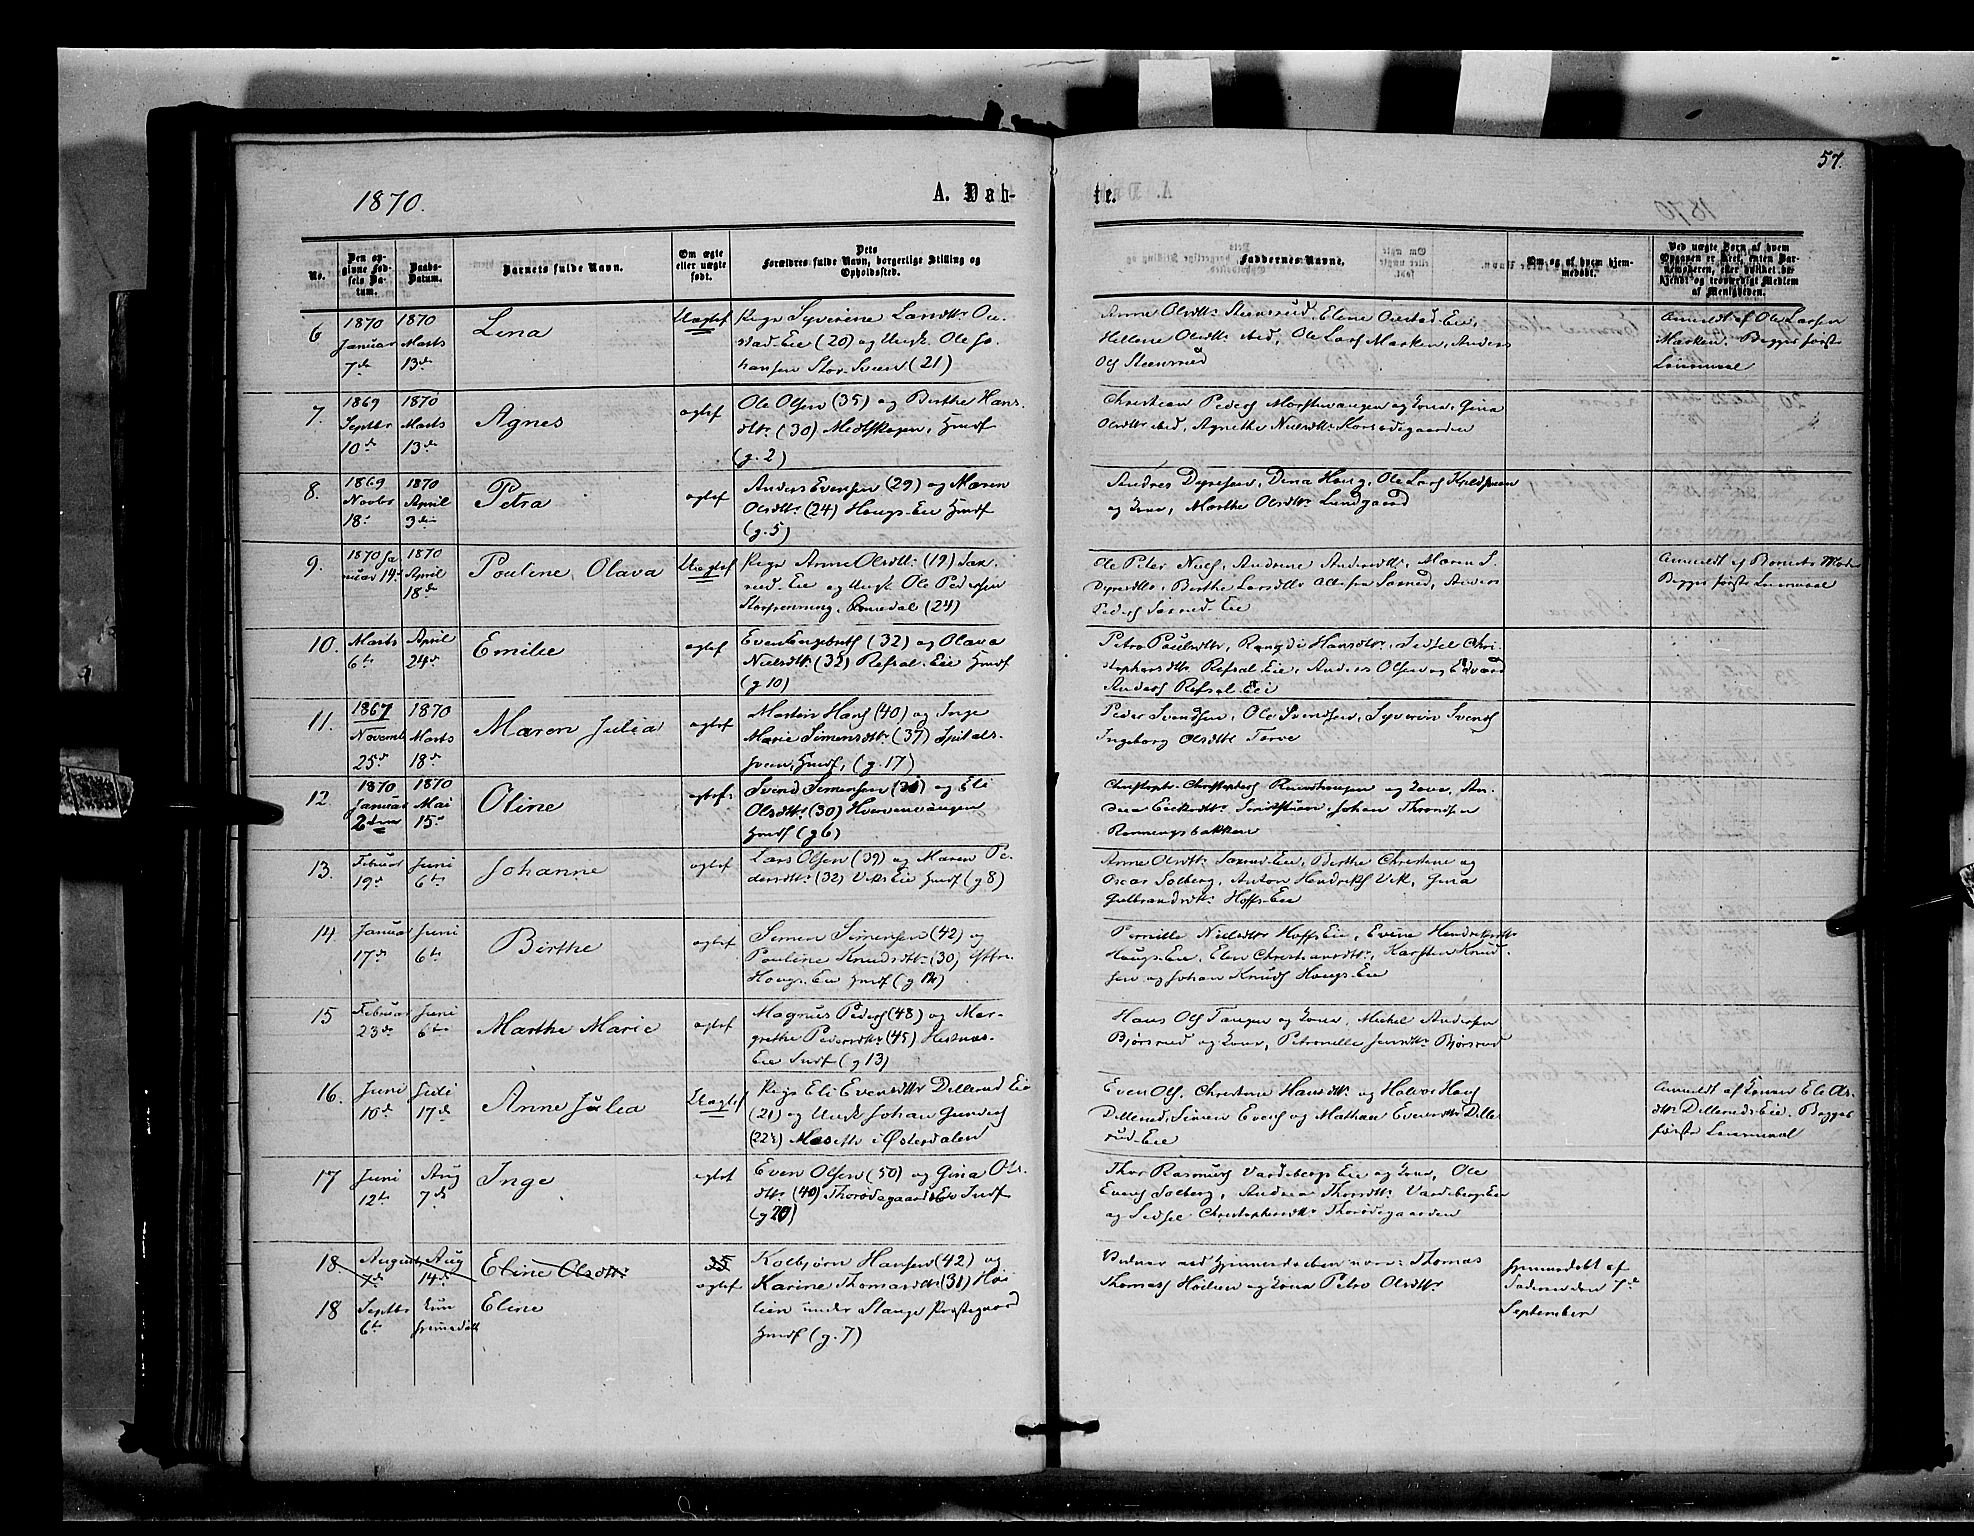 57.
1870.
A. Døb-
te.
1870
No.
Den op-
givne Fød-
sels Da-
tum.
Daabs-
Datum.
Barnets fulde Navn.
Om ægte
eller uægte
født.
Dets
Forældres fulde Navn, borgerlige Stilling og
Opholdssted.
Faddernes Navne.
Om og af hvem hjem-
medøbt.
Ved uægte Børn af hvem
Opgaven er skeet, enten Bar-
nemoderen, eller hvilket be-
kjendt og troværdigt Medlem
af Menigheden.
6
1870
Januar
7de
1870
Marts
13de
Lina
Uægtef
Pige Syverine Larsdtr
stad Eie (20) og Ungk. Ole Jo-
hansen Stor Sveen (21)
Anne Olsdtr Steensrud, Elene
Hellene Olsdtr ibid, Ole Lars Marken, Anders
Ols Steensrud
Anmeldt af Ole Larsen
Marken. Begges første
Leiermaal
7.
1869
Septbr
10de
1870
Marts
13de
Agnes
ægtef
Ole Olsen (35) og Berthe Hans-
dtr (30)
(g. 2)
Christian Peders og Kone, Gina
Olsdtr ibid, Agnethe Nielsdtr
8.
1869
Novbr
18
1870
April
3die
Petra
ægtef
Anders Evensen (29) og Maren
Olsdtr (24) Hougs-Eie Husf
(g. 5)
Andres Dyresen, Dina Houg, Ole Lars
og Kone, Marthe Olsdtr Lundgaard
9.
1870 Ja
nuar 14
1870
April
18de
Pouline Olava
Uægtef
Pige Anne Olsdtr (19) Sax-
rud-Eie og Ungk Ole Pedersen
Romedal (24)
Ole Peter Niels, Andrine Andersdtr, Maren S.
Dyresdtr, Berthe Larsdtr alle fra Saxrud, Anders
Peders Saxrud-Eie
Anmeldt af Barnets Moder
Begges første Leiermaal
10.
Marts
6te
April
24de
Emilie
ægtef
Even Engebrets (32) og Olava
Nielsdtr (32) Refsal-Eie Husf
(g 10)
Petra Paulsdtr, Rangdi Hansdtr, Sidsel Chri-
stophersdtr Refsal-Eie, Anders Olsen og Edvard
Anders Refsal-Eie
11.
1867
Novemb
25de
1870
Marts
18de
Maren Julia
ægtef
Martin Hans (40) og Inge
Marie Simensdtr (37) Spitals-
sveen, Husf, (g. 17)
Peder Svendsen, Ole Svendsen, Syverin Svends
Ingeborg Olsdtr Torve
12
1870
Januar
2den
1870
Mai
15
Oline
ægtef
Svend Simensen (31) og Eli
Olsdtr (30) Hvervenvangen
Husf (g 6)
Christoph. Christophers og Kone, An-
Johan Thronsen
Rønningsbakken
13.
Februar
19de
Juni
6te
Johanne
ægtef
Lars Olsen (39) og Maren Pe-
dersdtr (32) Viks Eie Husf (g 8)
Anne Olsdtr Saxrud-Eie, Berthe Christine og
Oscar Solberg, Anton Hendriks Vik, Gina
Gulbrandsdtr Hoffs-Eie
14.
Januar
17de
Juni
6te
Birthe
ægtef
Simen Simensen (42) og
Pouline Knudsdtr (30)
Hougs-Eie Husf (g 12)
Pernille Nielsdtr Hoffs-Eie, Evine Hendriksdtr
Hougs-Eie, Elen Christiansdtr, Karsten Knud-
sen og Johan Knuds Hougs-Eie
15
Februar
23de
Juni
6te
Marthe Marie
ægtef
Magnus Peders (48) og Mar-
grethe Pedersdtr (45) Hestnæs-
Eie Indf (g 13)
Hans Ols Tangen og Kone, Michel Andersen
Bjørsrud og Kone, Petronelle Jensdtr Bjørsrud
16.
Juni
10de
Juli
17de
Anne Julia
Uægtef
Pige Eli Evensdtr Dillerud Eie
(21) og Ungk Johan Gunders
(22½) i Østerdalen
Even Ols, Christine Hansdtr og Halvor Hans
Dillerud, Simen Evens og Mathea Evensdtr Dille
rud-Eie
Anmeldt af Konen Eli Ols-
dtr Dilleruds Eie. Begges
første Leiermaal
17
Juni
12te
Aug
7de
Inge
ægtef
Even Olsen (50) og Gina Ols-
dtr (40) Thorødegaards Eie Indf
(g 20)
Thor Rasmus Vardebergs Eie og Kone, Ole
Evens Solberg, Andrea Thorsdtr Vardebergs Eie
og Sidsel Christophersdtr Thorødegaarden
18.
August
7de
Aug
14de
Eline Olsdtr
35
ægtef
Kolbjørn Hansen (42) og
Karine Thomasdtr (31) Høi
lien under Stange Præstegaard
Husf (g. 7)
Vidner ved Hjemmedaaben vare: Thomas
Thomas Høilien og Kone Petra Olsdtr
Hjemmedøbt af
Faderen den 7de
September
18
Septbr
6te
Kun
hjemmedøbt
Eline